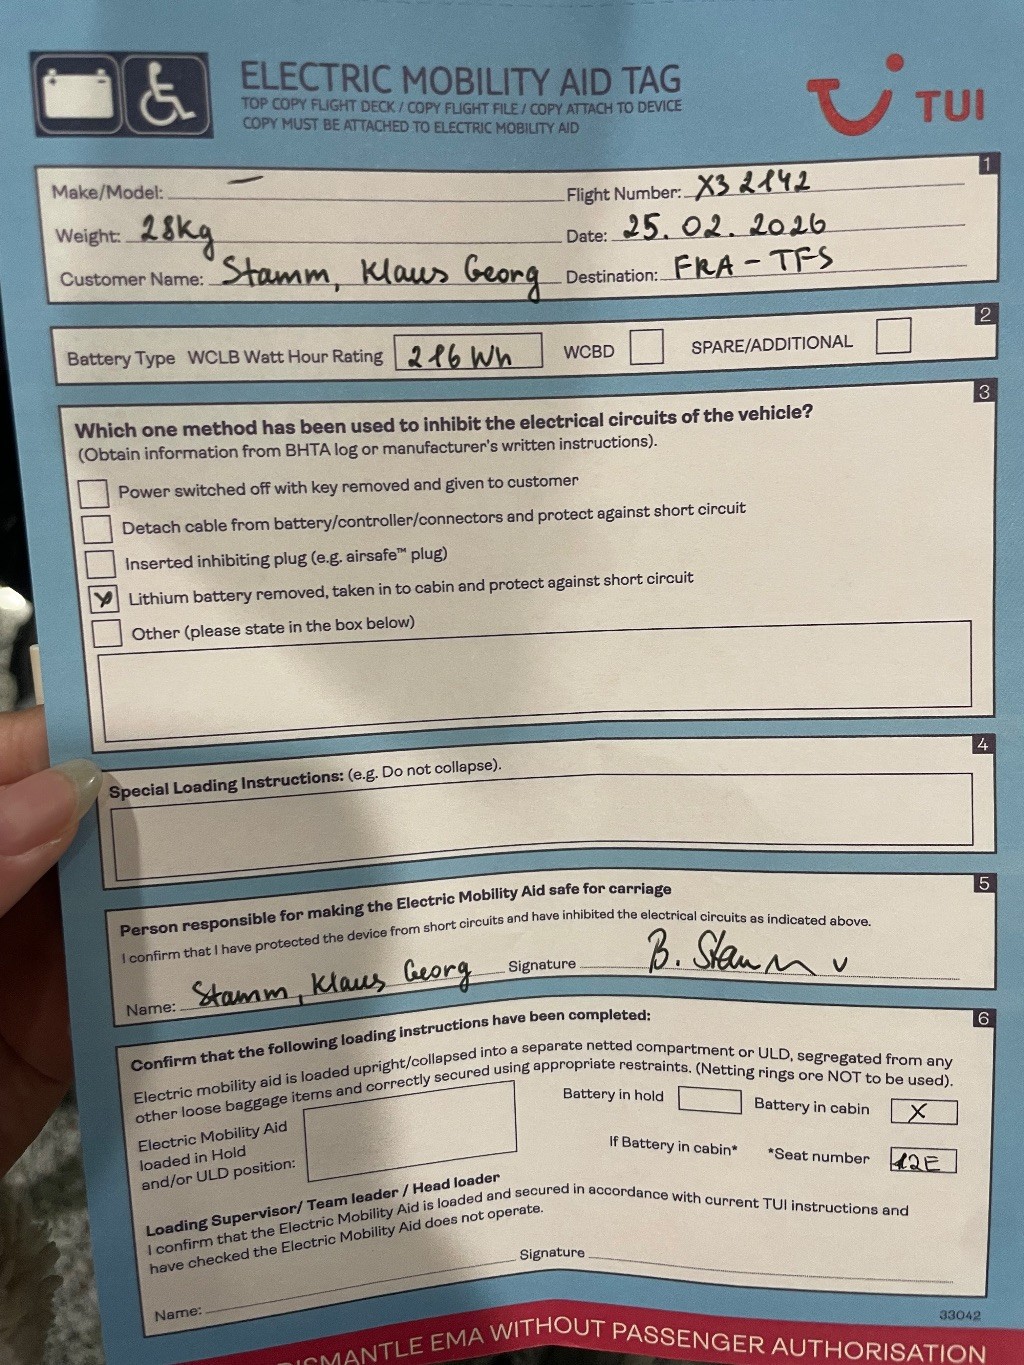 ELECTRIC MOBILITY AID TAG
TOP COPY FLIGHT DECK / COPY FLIGHT FILE / COPY ATTACH TO DEVICE
COPY MUST BE ATTACHED TO ELECTRIC MOBILITY AID
TUI
1
Make/Model: —
Flight Number: X3 2142
Weight: 28kg
Date: 25.02.2026
Customer Name: Stamm, Klaus Georg
Destination: FRA - TFS
2
Battery Type WCLB Watt Hour Rating 216 Wh WCBD SPARE/ADDITIONAL
3
Which one method has been used to inhibit the electrical circuits of the vehicle?
(Obtain information from BHTA log or manufacturer's written instructions).
Power switched off with key removed and given to customer
Detach cable from battery/controller/connectors and protect against short circuit
Inserted inhibiting plug (e.g. airsafe™ plug)
X Lithium battery removed, taken in to cabin and protect against short circuit
Other (please state in the box below)
4
Special Loading Instructions: (e.g. Do not collapse).
5
Person responsible for making the Electric Mobility Aid safe for carriage
I confirm that I have protected the device from short circuits and have inhibited the electrical circuits as indicated above.
Name: Stamm, Klaus Georg Signature B. Stamm
6
Confirm that the following loading instructions have been completed:
Electric mobility aid is loaded upright/collapsed into a separate netted compartment or ULD, segregated from any
other loose baggage items and correctly secured using appropriate restraints. (Netting rings ore NOT to be used).
Electric Mobility Aid
loaded in Hold
and/or ULD position:
Battery in hold
Battery in cabin X
If Battery in cabin* *Seat number 12E
Loading Supervisor/ Team leader / Head loader
I confirm that the Electric Mobility Aid is loaded and secured in accordance with current TUI instructions and
have checked the Electric Mobility Aid does not operate.
Name: Signature
33042
DISMANTLE EMA WITHOUT PASSENGER AUTHORISATION